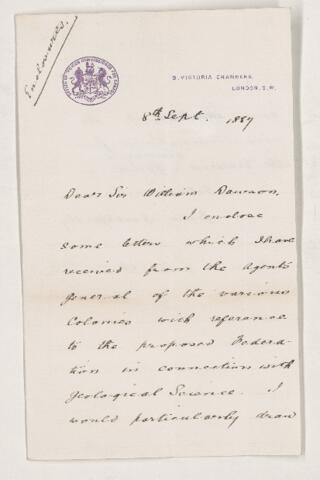 Enclosures.
9, VICTORIA CHAMBERS,
LONDON, S.W.
8th Sept. 1887
Dear Sir William Dawson,
I enclose
some letters which I have
received from the Agents
General of the various
Colonies with reference
to the proposed Federa-
tion in connection with
Geological Science. I
would particularly draw